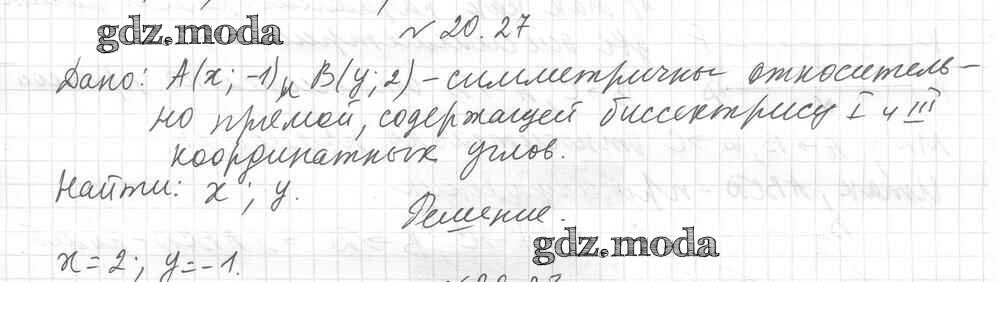 gdz.moda
№ 20.27
Дано: A(x; -1) и B(y; 2) – симметричны относитель-
но прямой, содержащей биссектрису I и III
координатных углов.
Найти: x; y.
Решение.
gdz.moda
x=2; y=-1.